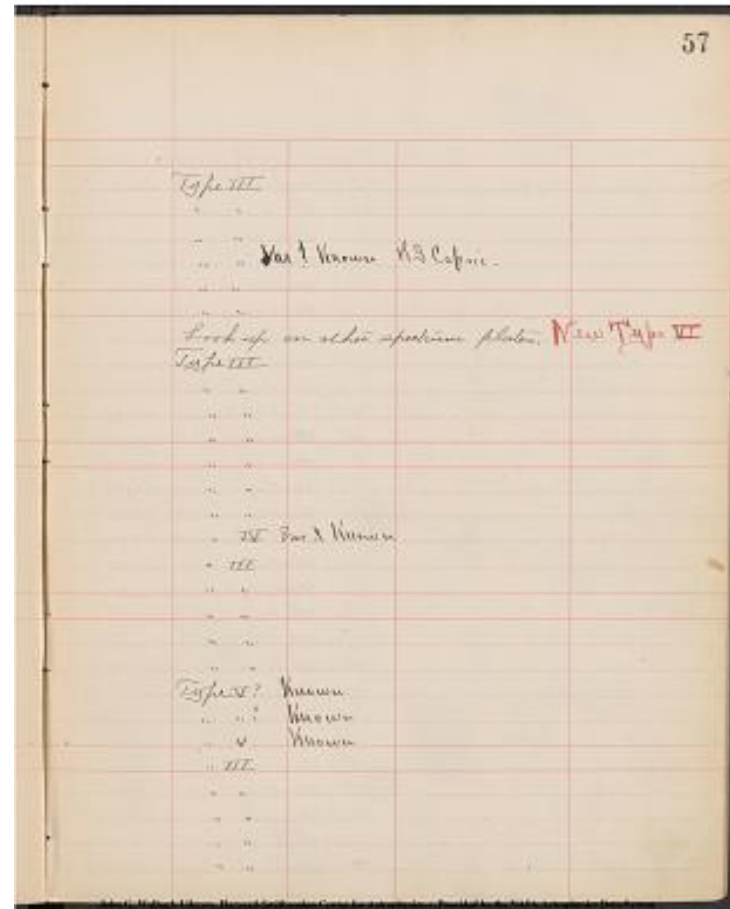 57
Type III
" "
" "
" " Var ! Known Capric.
" "
" "
Look up on other spectrum plates. New Type VI
Type III
" "
" "
" "
" "
" "
" "
" IV Known
" III
" "
" "
" "
" "
Type V? Known
" " ? Known
" V Known
" III.
" "
" "
" "
" "